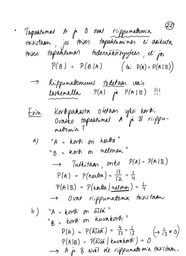 22
• Tapahtumat A ja B ovat riippumattomia
toisistaan, jos toisen tapahtuminen ei vaikuta
toisen tapahtuman todennäköisyyteen, eli jos
P(B) = P(B|A) (tai P(A) = P(A|B))
→ Riippumattomuus todetaan vain
laskemalla P(A) ja P(A|B) !!!
Esim. Korttipakasta otetaan yksi kortti.
Ovatko tapahtumat A ja B riippu-
mattomia?
a) "A = kortti on hertta"
"B = kortti on nelonen"
→ Tutkitaan, onko P(A) = P(A|B)
P(A) = P(hertta) = 13/52 = 1/4
P(A|B) = P(hertta|nelonen) = 1/4
→ Ovat riippumattomia toisistaan.
b.) "A = kortti on ässä"
"B = kortti on kuvakortti"
P(A) = P(ässä) = 4/52 = 1/13
P(A|B) = P(ässä|kuvakortti) = 0
→ A ja B eivät ole riippumattomia toisistaan.